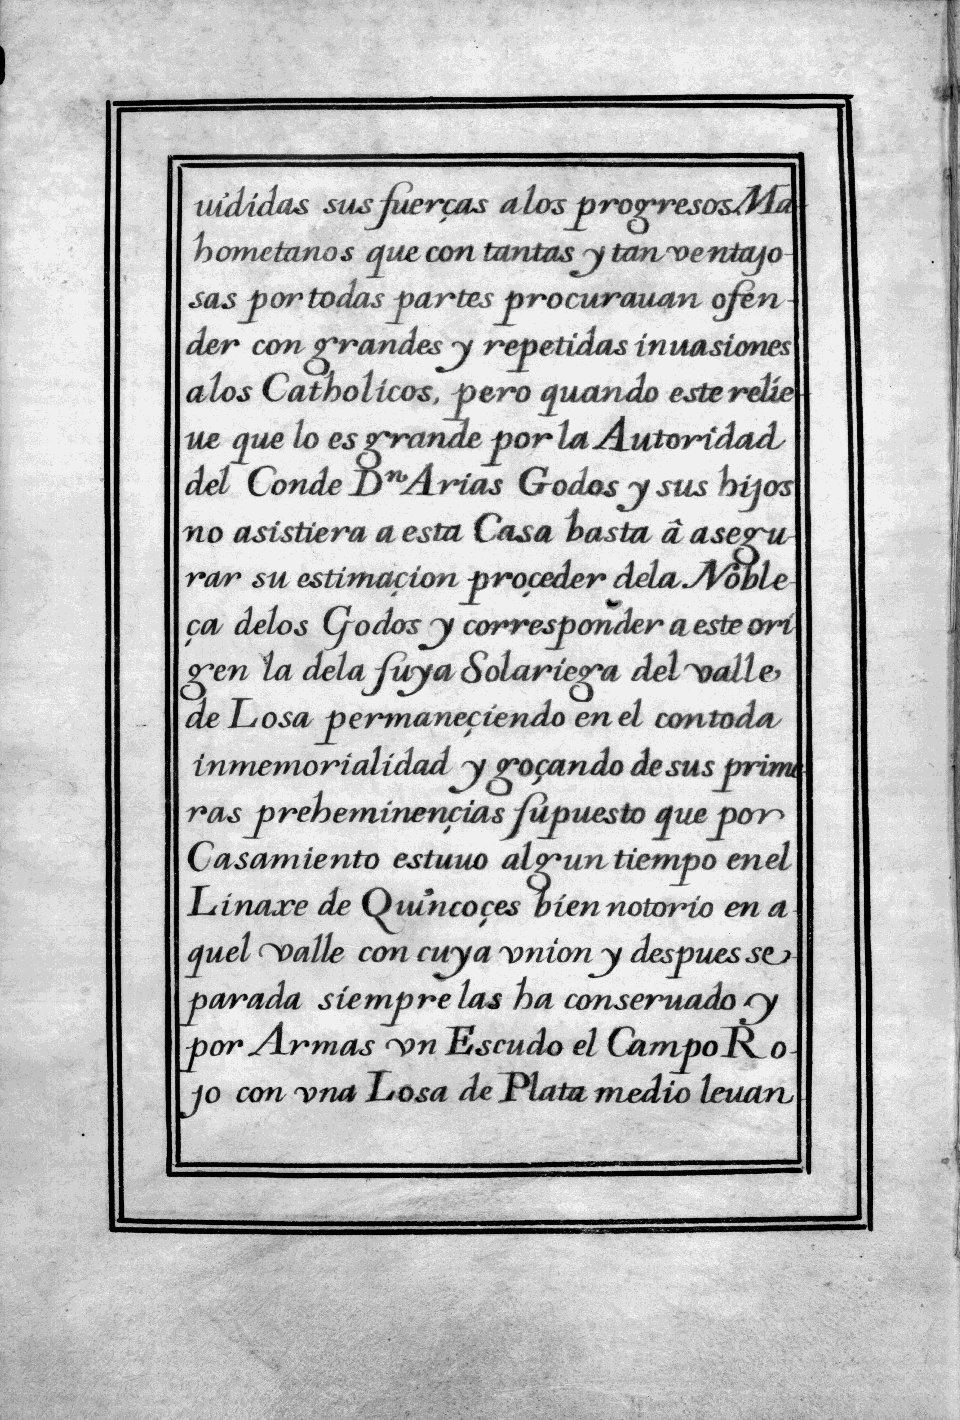 uididas sus fuerças alos progresos Ma-
hometanos que con tantas y tan ventajo-
sas por todas partes procurauan ofen-
der con grandes y repetidas inuasiones
alos Catholicos, pero quando este relie-
ue que lo es grande por la Autoridad
del Conde Dn Arias Godos y sus hijos
no asistiera a esta Casa basta â asegu-
rar su estimaçion proçeder dela Noble-
ça delos Godos y corresponder a este ori
gen la dela suya Solariega del valle
de Losa permaneçiendo en el con toda
inmemorialidad y goçando de sus prime
ras preheminençias supuesto que por
Casamiento estuuo algun tiempo en el
Linaxe de Quincoçes bien notorio en a-
quel valle con cuya vnion y despues se-
parada siempre las ha conseruado y
por Armas vn Escudo el Campo Ro-
jo con vna Losa de Plata medio leuan